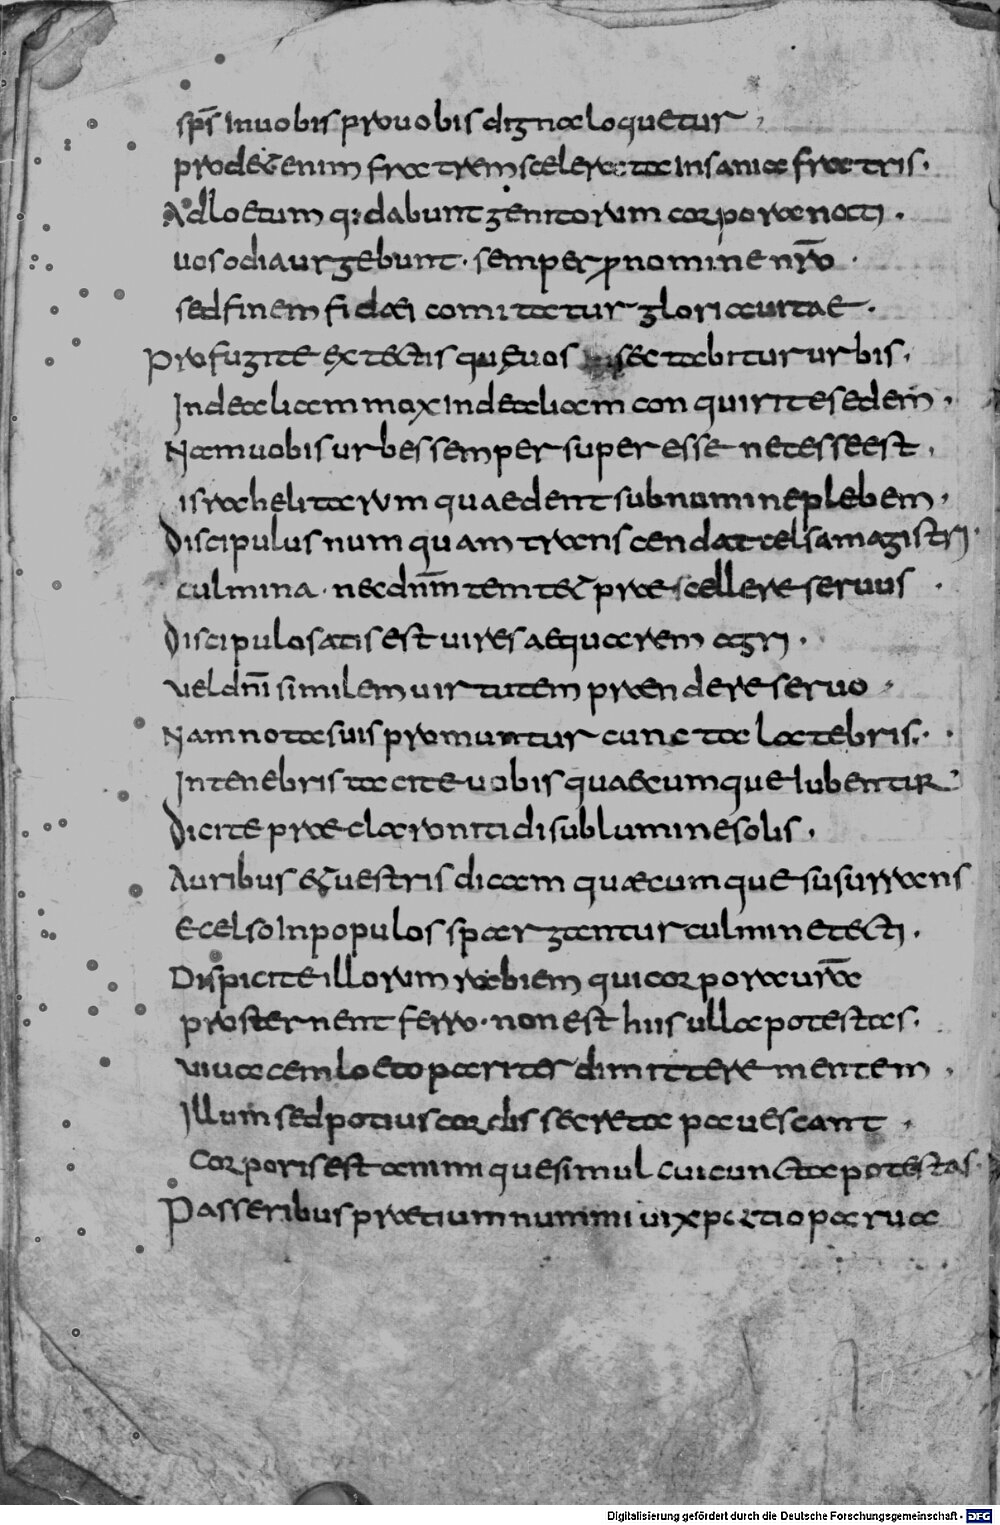 sp̄s inuobis prouobis digna loquetur
prodet enim fratrem scelerata insania fratris.
Ad loetumq: dabunt genitorum corpora nati.
uos odia urgebunt. semper p nomine nr̄o.
sed finem fidaei comitatur gloria uitae.
Profugite ex tectis quae uos sectabitur urbis,
In dealiam mox in dealiam conquirite sedem.
Nam uobis urbes semper superesse necesse est,
israhelitarum quae dent sub nomine plebem.
Discipulus numquam transcendat celsa magistri.
culmina. nec dn̄m temtet praecellere seruus.
Discipulo satis est uires aequarem agri.
vel dn̄i similem uirtutem praendere seruo
Nam nota suis promuntur cuncta latebris.
In tenebris tacite uobis quaecumque lubentur
Dicite praeclaro niti di sub lumine solis.
Auribus et uestris dicam quaecumque susurrans
E celso in populos spargantur culmine tecti.
Dispicite illorum rabiem qui corpora ur̄a
prosternent ferro. non est hiis ulla potestas.
viuacem loeto pariter dimittere mentem.
Illum sed potius cordis secreta pauescant.
Corporis est animique simul cui cuncta potestas.
Passeribus praetium nummi uix portio parua
Digitalisierung gefördert durch die Deutsche Forschungsgemeinschaft - DFG